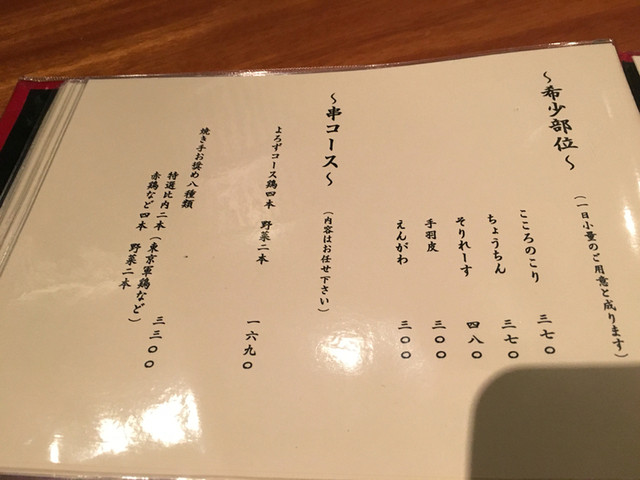 ～希少部位～
（一日小量のご用意と成ります）
こころのこり 三七〇
ちょうちん 三七〇
そりれーす 四八〇
手羽皮 三〇〇
えんがわ 三〇〇
～串コース～
（内容はお任せ下さい）
よろずコース鶏四本 野菜二本 一六九〇
焼き手お奨め八種類
特選比内二本（東京軍鶏など）
赤鶏など四本 野菜二本 三三〇〇